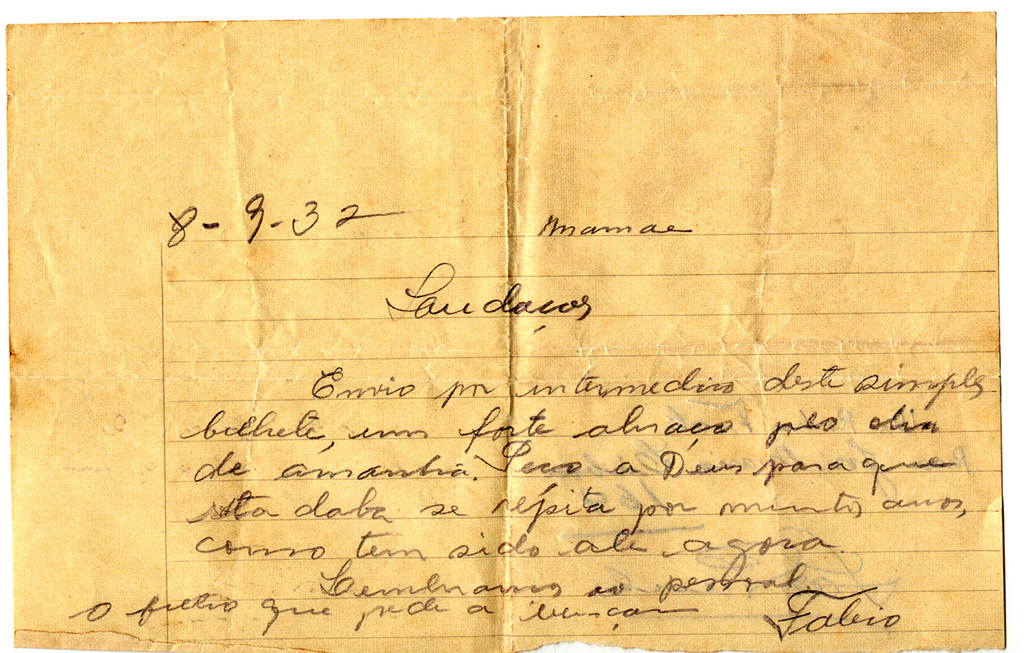 8-9-32 Mamae
Saudaçoes
Envio por intermedio deste simples
bilhete, um forte abraço pelo dia
de amanhã. Peço a Deus para que
esta data se repita por muitos anos,
como tem sido até agora.
Lembranças ao pessoal
o filho que pede a bençam
Fabio